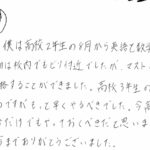 僕は高校2年生の8月から英語で数学
初は校内でもビリ付近でしたが、マスト
格することができました。高校3年生の
のですがもっと早くやるべきでした。今高
だけでもやっておくべきだと思いま
まであリがとうございました。